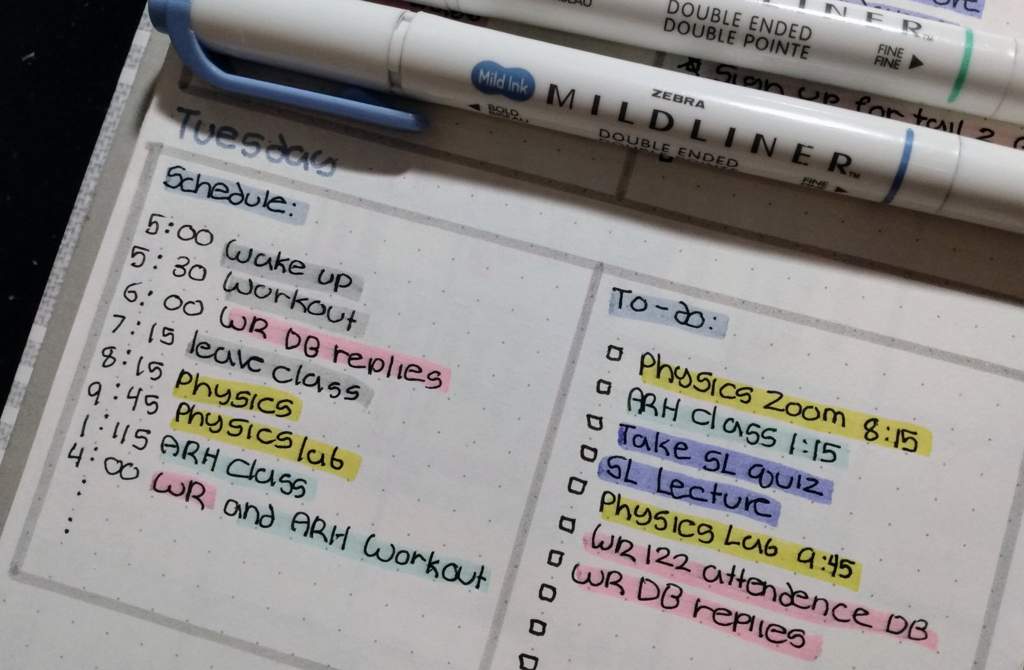 DOUBLE ENDED
DOUBLE POINTE
FINE
FINE
Sign up for
Mild Ink
ZEBRA
MILDLINER™
DOUBLE ENDED
FINE
Tuesday
Schedule:
5:00 wake up
5:30 Workout
6:00 WR DB replies
7:15 leave class
8:15 Physics
9:45 Physics lab
1:15 ARH Class
4:00 WR and ARH Workout
To-do:
Physics Zoom 8:15
ARH Class 1:15
Take SL quiz
SL Lecture
Physics Lab 9:45
WR 122 attendence DB
WR DB replies